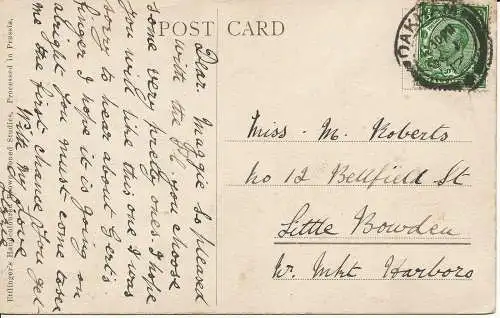 POST CARD
OAKHAM
Dear Maggie so pleased
with the P.C. you choose
some very pretty ones. I hope
you will like this one I was
sorry to hear about Gert's
finger I hope it is going on
alright you must come &
me the first chance you get
With my love
Miss. M. Roberts
No 12 Bellfield St
Little Bowden
Nr. Mkt Harboro
Studies, Processed in Prussia.